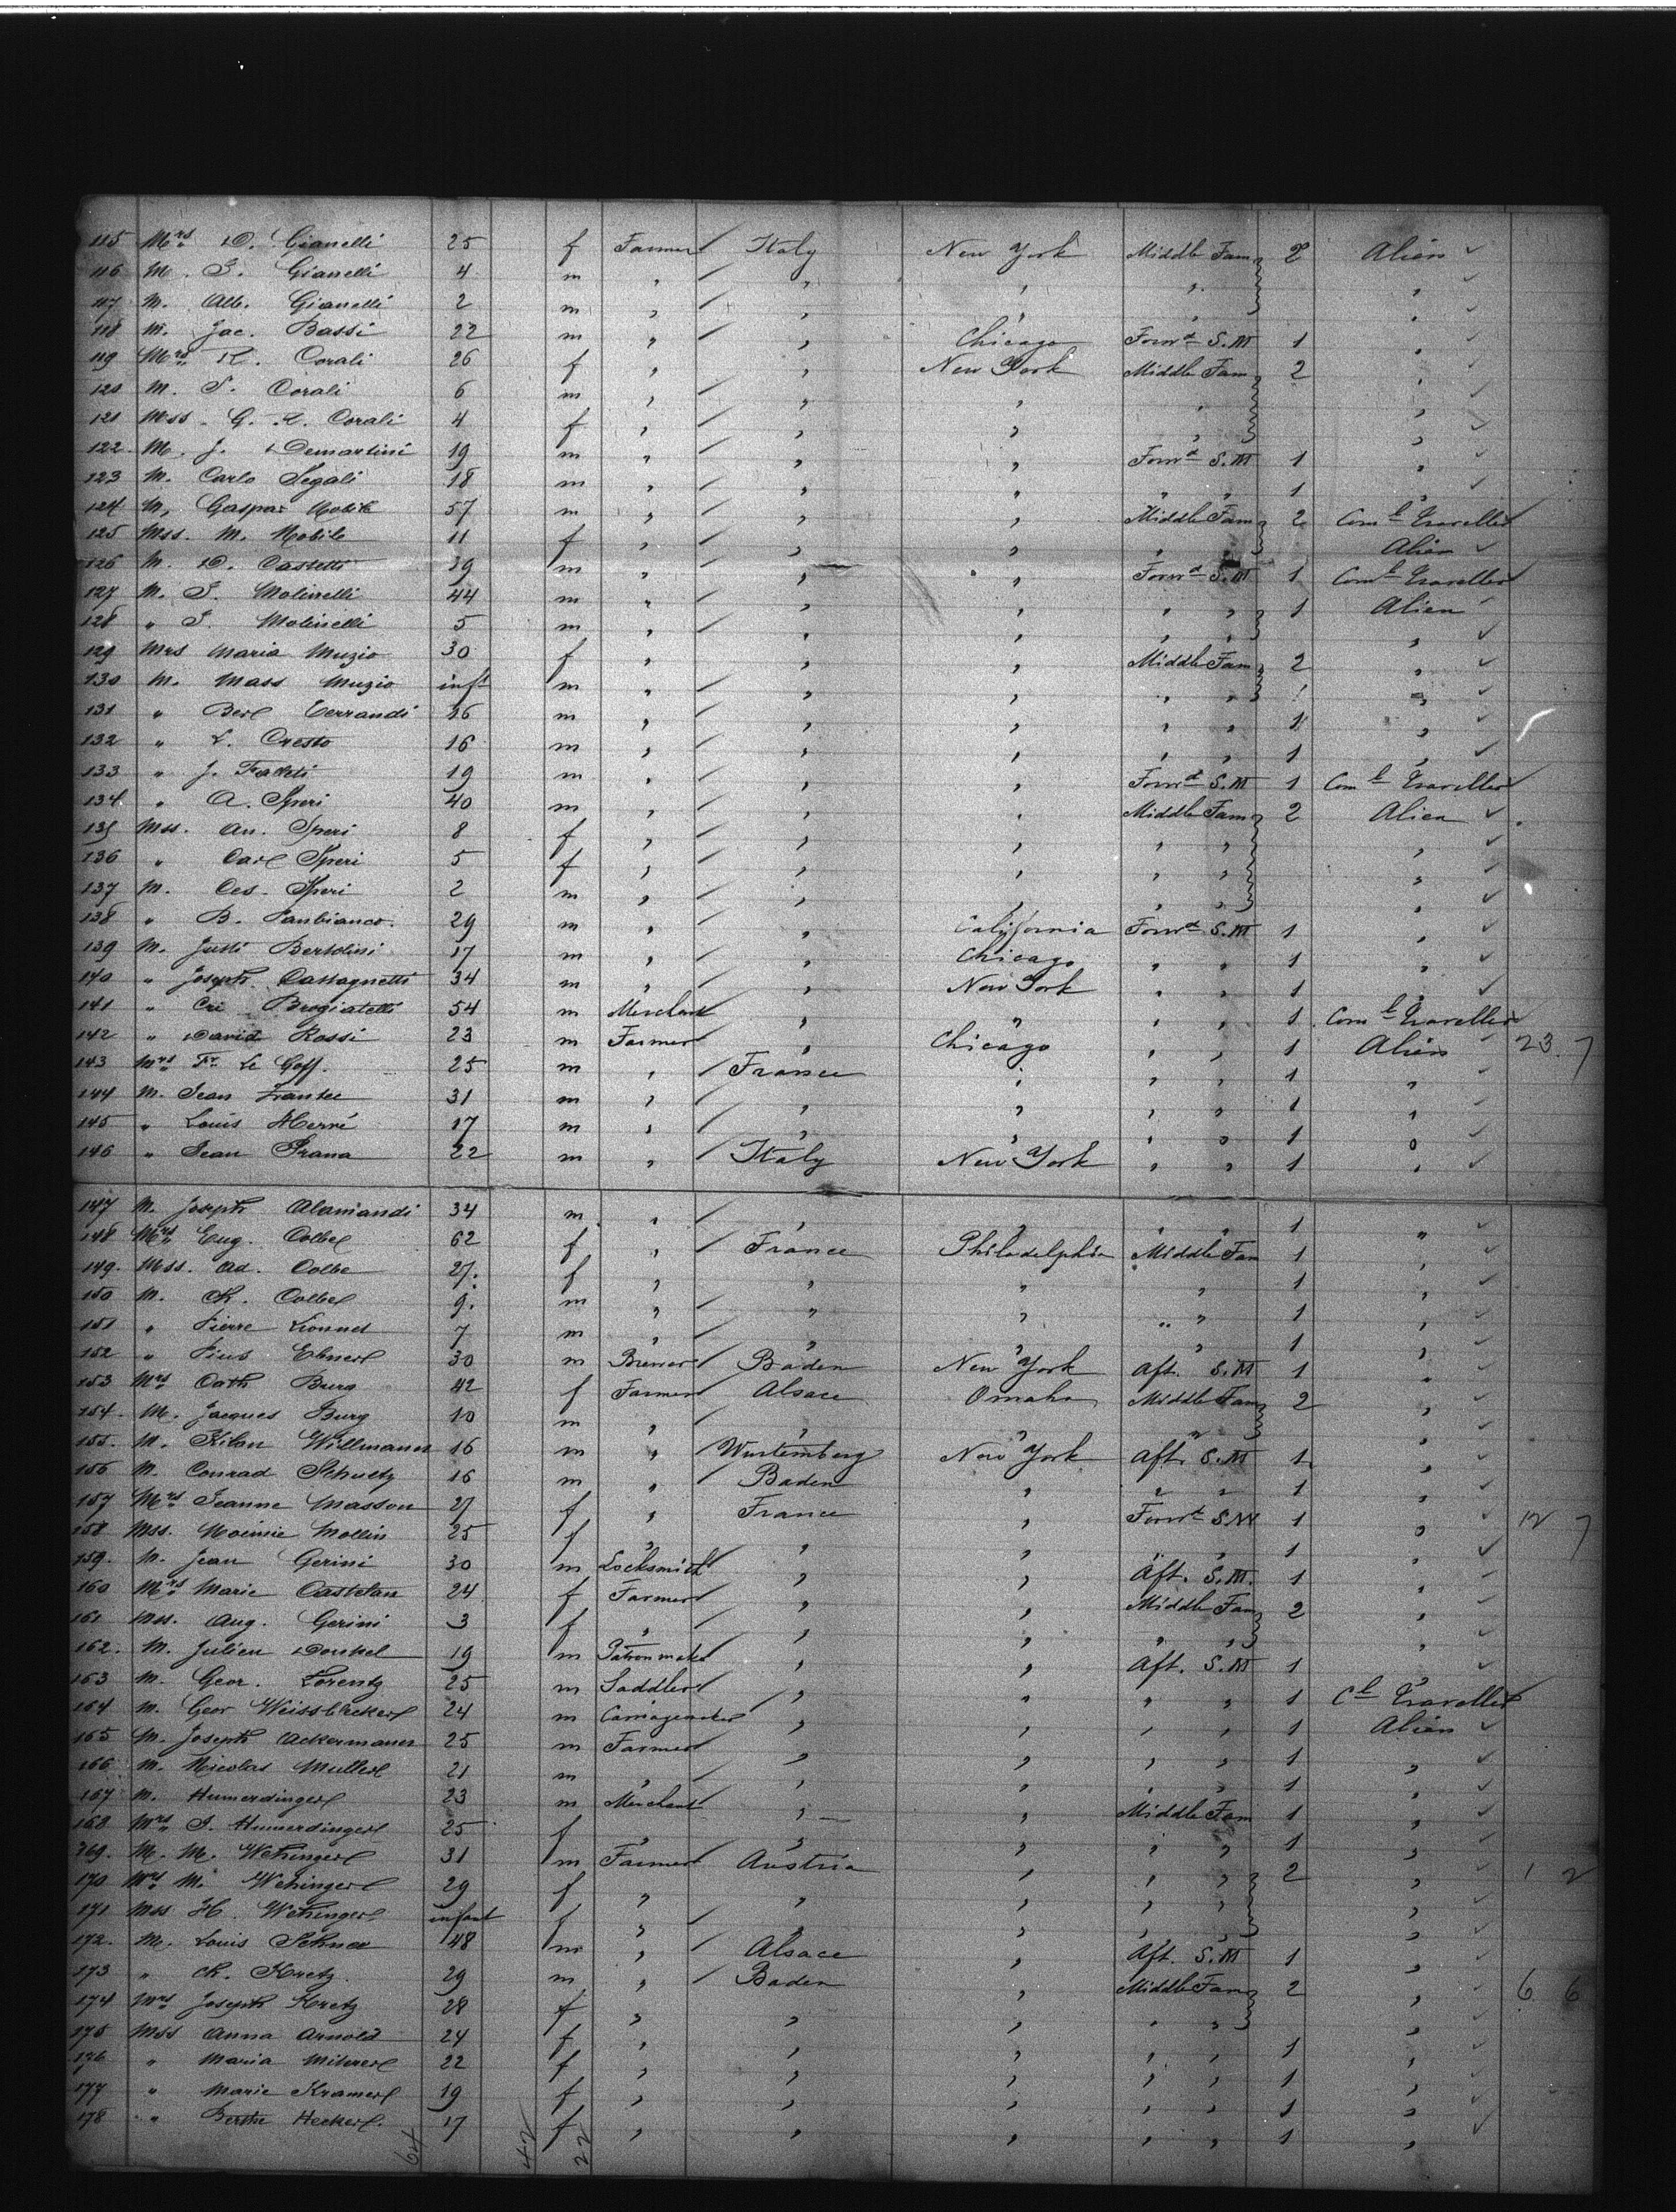 115 Mrs D. Gianelli 25 f Farmer Italy New York Middle Fam 2 Alien
116 M. S. Gianelli 4 m " " " " "
117 M. Alb. Gianelli 2 m " " " " "
118 M. Jac. Bassi 22 m " " Chicago Forwd S.M 1 "
119 Mrs R. Corali 26 f " " New York Middle Fam 2 "
120 M. S. Corali 6 m " " " " "
121 Mss. G. R. Corali 4 f " " " " "
122 M. J. Demartini 19 m " " " Forwd S.M 1 "
123 M. Carlo Segali 18 m " " " " " 1 "
124 M. Gaspar Nobile 57 m " " " Middle Fam 2 Coml Traveller
125 Mss. M. Nobile 11 f " " " " " Alien
126 M. D. Cassetti 39 m " " " Forwd S.M 1 Coml Traveller
127 M. S. Molinelli 44 m " " " " " 1 Alien
128 " S. Molinelli 5 m " " " " " "
129 Mrs Maria Muzio 30 f " " " Middle Fam 2 "
130 M. Mass Muzio inft m " " " " " "
131 " Berl Cerrandi 16 m " " " " " 1 "
132 " L. Cresto 16 m " " " " " 1 "
133 " J. 19 m " " " Forwd S.M 1 Coml Traveller
134 " A. Speri 40 m " " " Middle Fam 2 Alien
135 Mss. An. Speri 8 f " " " " " "
136 " Carl Speri 5 f " " " " " "
137 M. Ces. Speri 2 m " " " " " "
138 " B. Sanbianco. 29 m " " California Forwd S.M 1 "
139 M. Justi Bertolini 17 m " " Chicago " " 1 "
140 " Joseph Cassagnetti 34 m " " New York " " 1 "
141 " Cri Brogiatelli 54 m Merchant " " " " 1 Coml Traveller
142 " David Rossi 23 m Farmer " Chicago " " 1 Alien 23. 7
143 Mrs Fr. Le Goff. 25 m " France " " " 1 "
144 M. Jean Frantec 31 m " " " " " 1 "
145 " Louis Hervé 17 m " " " " " 1 "
146 " Jean Prana 22 m " Italy New York " " 1 "
147 M. Joseph Alamandi 34 m " " " " " 1 "
148 Mrs Eug. Colbel 62 f " France Philadelphia Middle Fam 1 "
149. Mss. Ad. Colbe 27. f " " " " 1 "
150 M. Ch. Colbel 9. m " " " " 1 "
151 " Pierre Lionnet 7 m " " " " 1 "
152 " Pius Ebnerl 30 m Brewer Baden New York Aft. S.M 1 "
153 Mrs Cath Burg 42 f Farmer Alsace Omaha Middle Fam 2 "
154. M. Jacques Burg 10 m " " " " "
155. M. Kilan Willmann 16 m " Wurtemberg New York Aft. S.M 1 "
156 M. Conrad Schuetz 16 m " Baden " " " 1 "
157 Mrs Jeanne Masson 27 f " France " Forwd S.W 1 " 12 7
158 Mss. Noémie Mollin 25 f " " " " 1 "
159. M. Jean Gerini 30 m Locksmith " " Aft. S.M. 1 "
160 Mrs Marie Castelan 24 f Farmer " " Middle Fam 2 "
161 Mss. Aug. Gerini 3 f " " " " " "
162. M. Julien Donkel 19 m Patronmaker " " Aft. S.M 1 "
163 M. Geor. Lorentz 25 m Saddler " " " " 1 Cl Traveller
164 M. Geor Weissbleckerl 24 m Carriagemaker " " " " 1 Alien
165 M. Joseph Ackermann 25 m Farmer " " " " 1 "
166 M. Nicolas Mullerl 21 m " " " " " 1 "
167 M. Humerdingerl 23 m Merchant " " Middle Fam 1 "
168 Mrs S. Humerdingerl 25 f " " " " " 1 "
169. M. M. Wehingerl 31 m Farmer Austria " " " 2 " 1 2
170 Mrs M. Wehingerl 29 f " " " " " "
171 Mss H. Wehingerl infant f " " " " " "
172. M. Louis 48 m " Alsace " Aft. S.M 1 "
173 " Ch. Kretz. 29 m " Baden " Middle Fam 2 " 6 6
174 Mrs Joseph Kretz 28 f " " " " " "
175 Mss Anna Arnold 24 f " " " " " 1 "
176 " Maria Mihrerl 22 f " " " " " 1 "
177 " Marie Kramerl 19 f " " " " " 1 "
178 " Berthe Heckerl. 17 f " " " " " 1 "
64 42 22